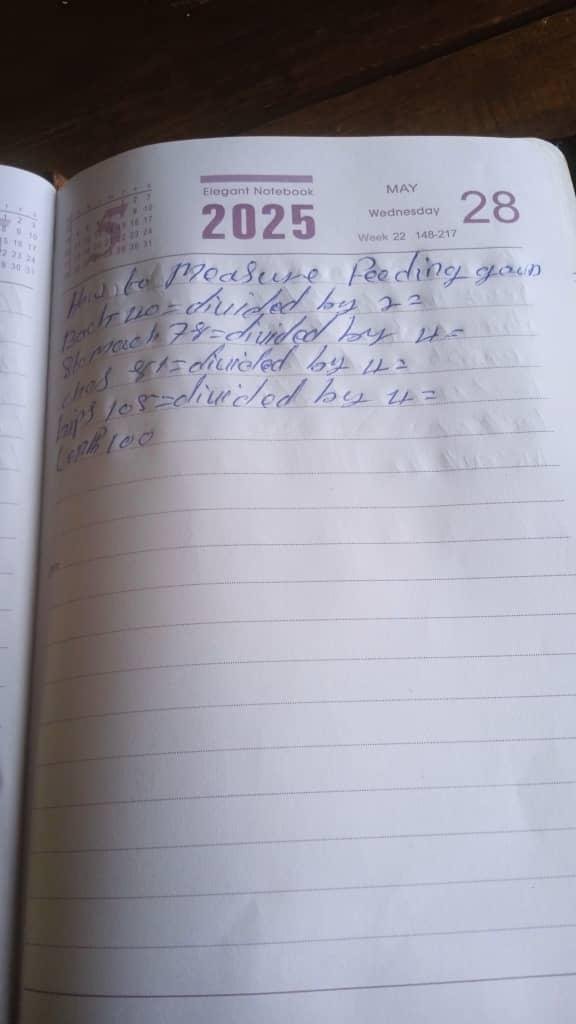 Elegant Notebook
2025
MAY
Wednesday
28
Week 22 148-217
How to Measure Feeding gown
Back 40 = divided by 2 =
Stomach 78 = divided by 4 =
ches 81 = divided by 4 =
hips 105 = divided by 4 =
100